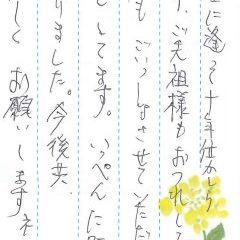 に逢って十年位かしら
、ご先祖様もおつれして
も ごいっしょさせていただ
としてます。いっぺんに
りました。今後共
しく お願いしますネ